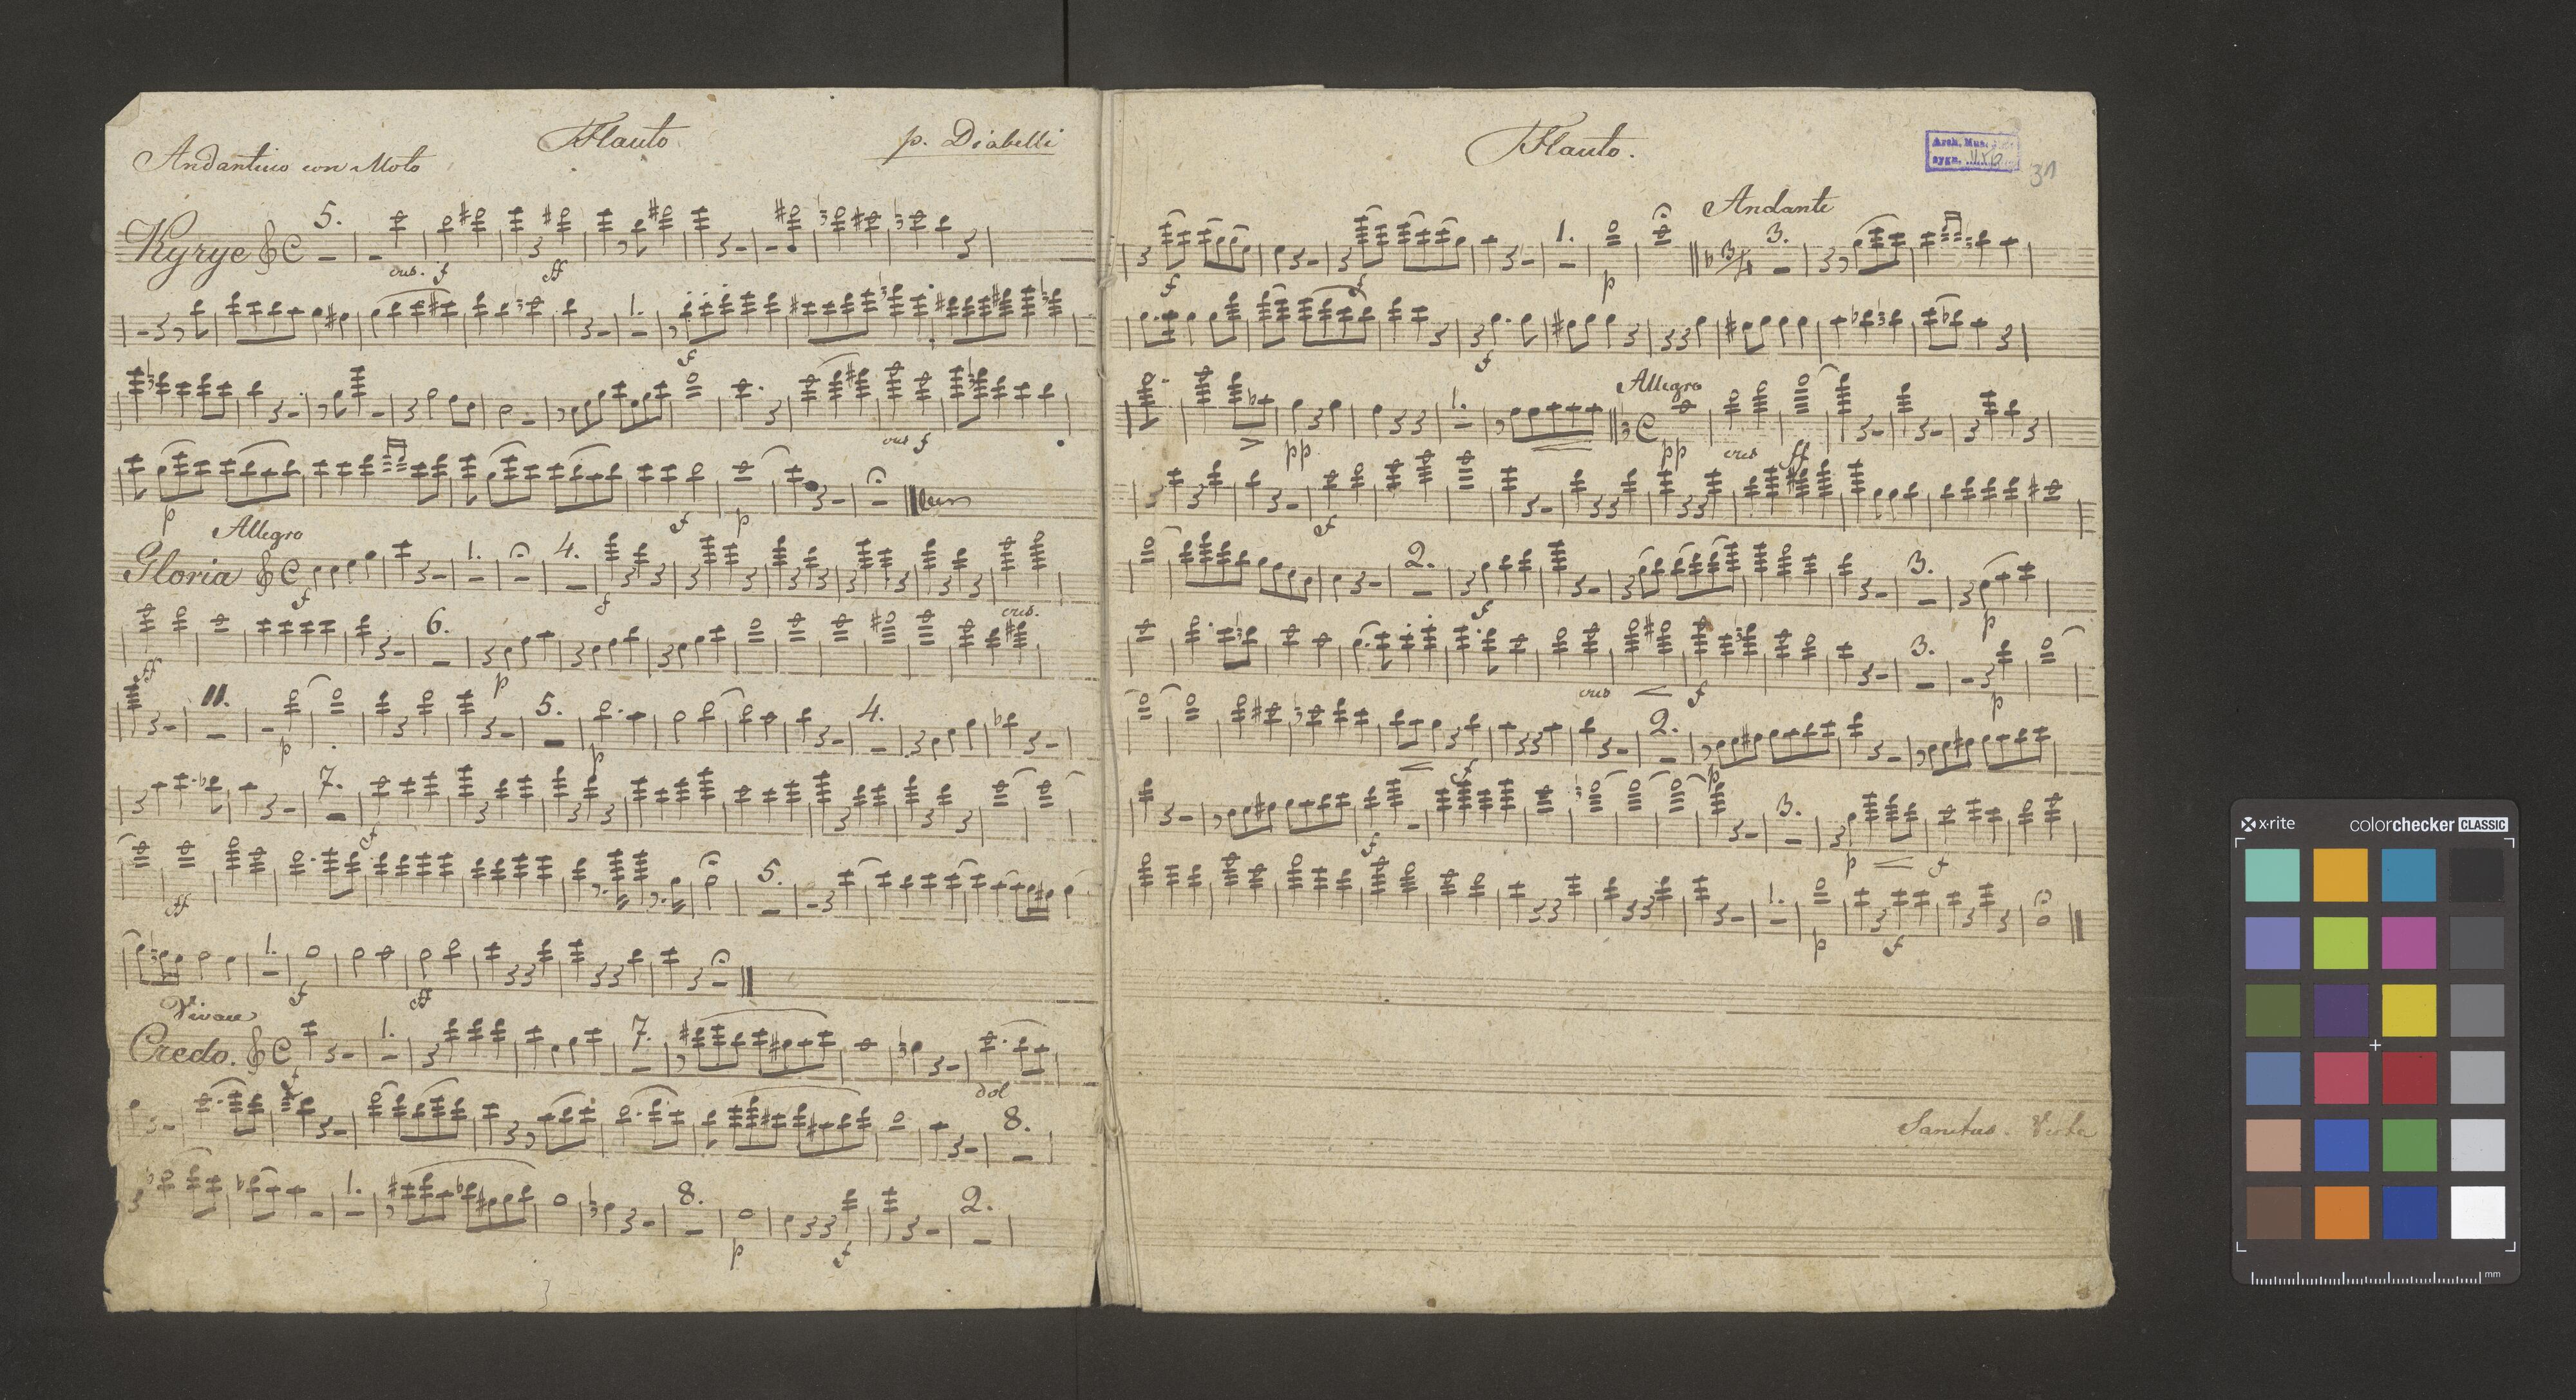 Flauto
p. Diabelli
Andantino con Moto
5.
Kyrye
cres. f ff
1.
f
cres f
p f p
Allegro
1. 4.
Gloria
f f
cres.
6.
ff p
11. 5. 4.
p p
7.
f
5.
ff
1.
f ff
Vivace
1. 7.
Credo.
f dol
8.
1. 8. 2.
p f
Flauto.
Arch. Mus.
sygn.
31
Andante
1. 3/4 3.
f f p
f
Allegro
1.
pp pp cres ff
f
2. 3.
f p
3.
cres f p
2.
f p
3.
f p f
1.
p f
Sanctus
x·rite
colorchecker CLASSIC
mm